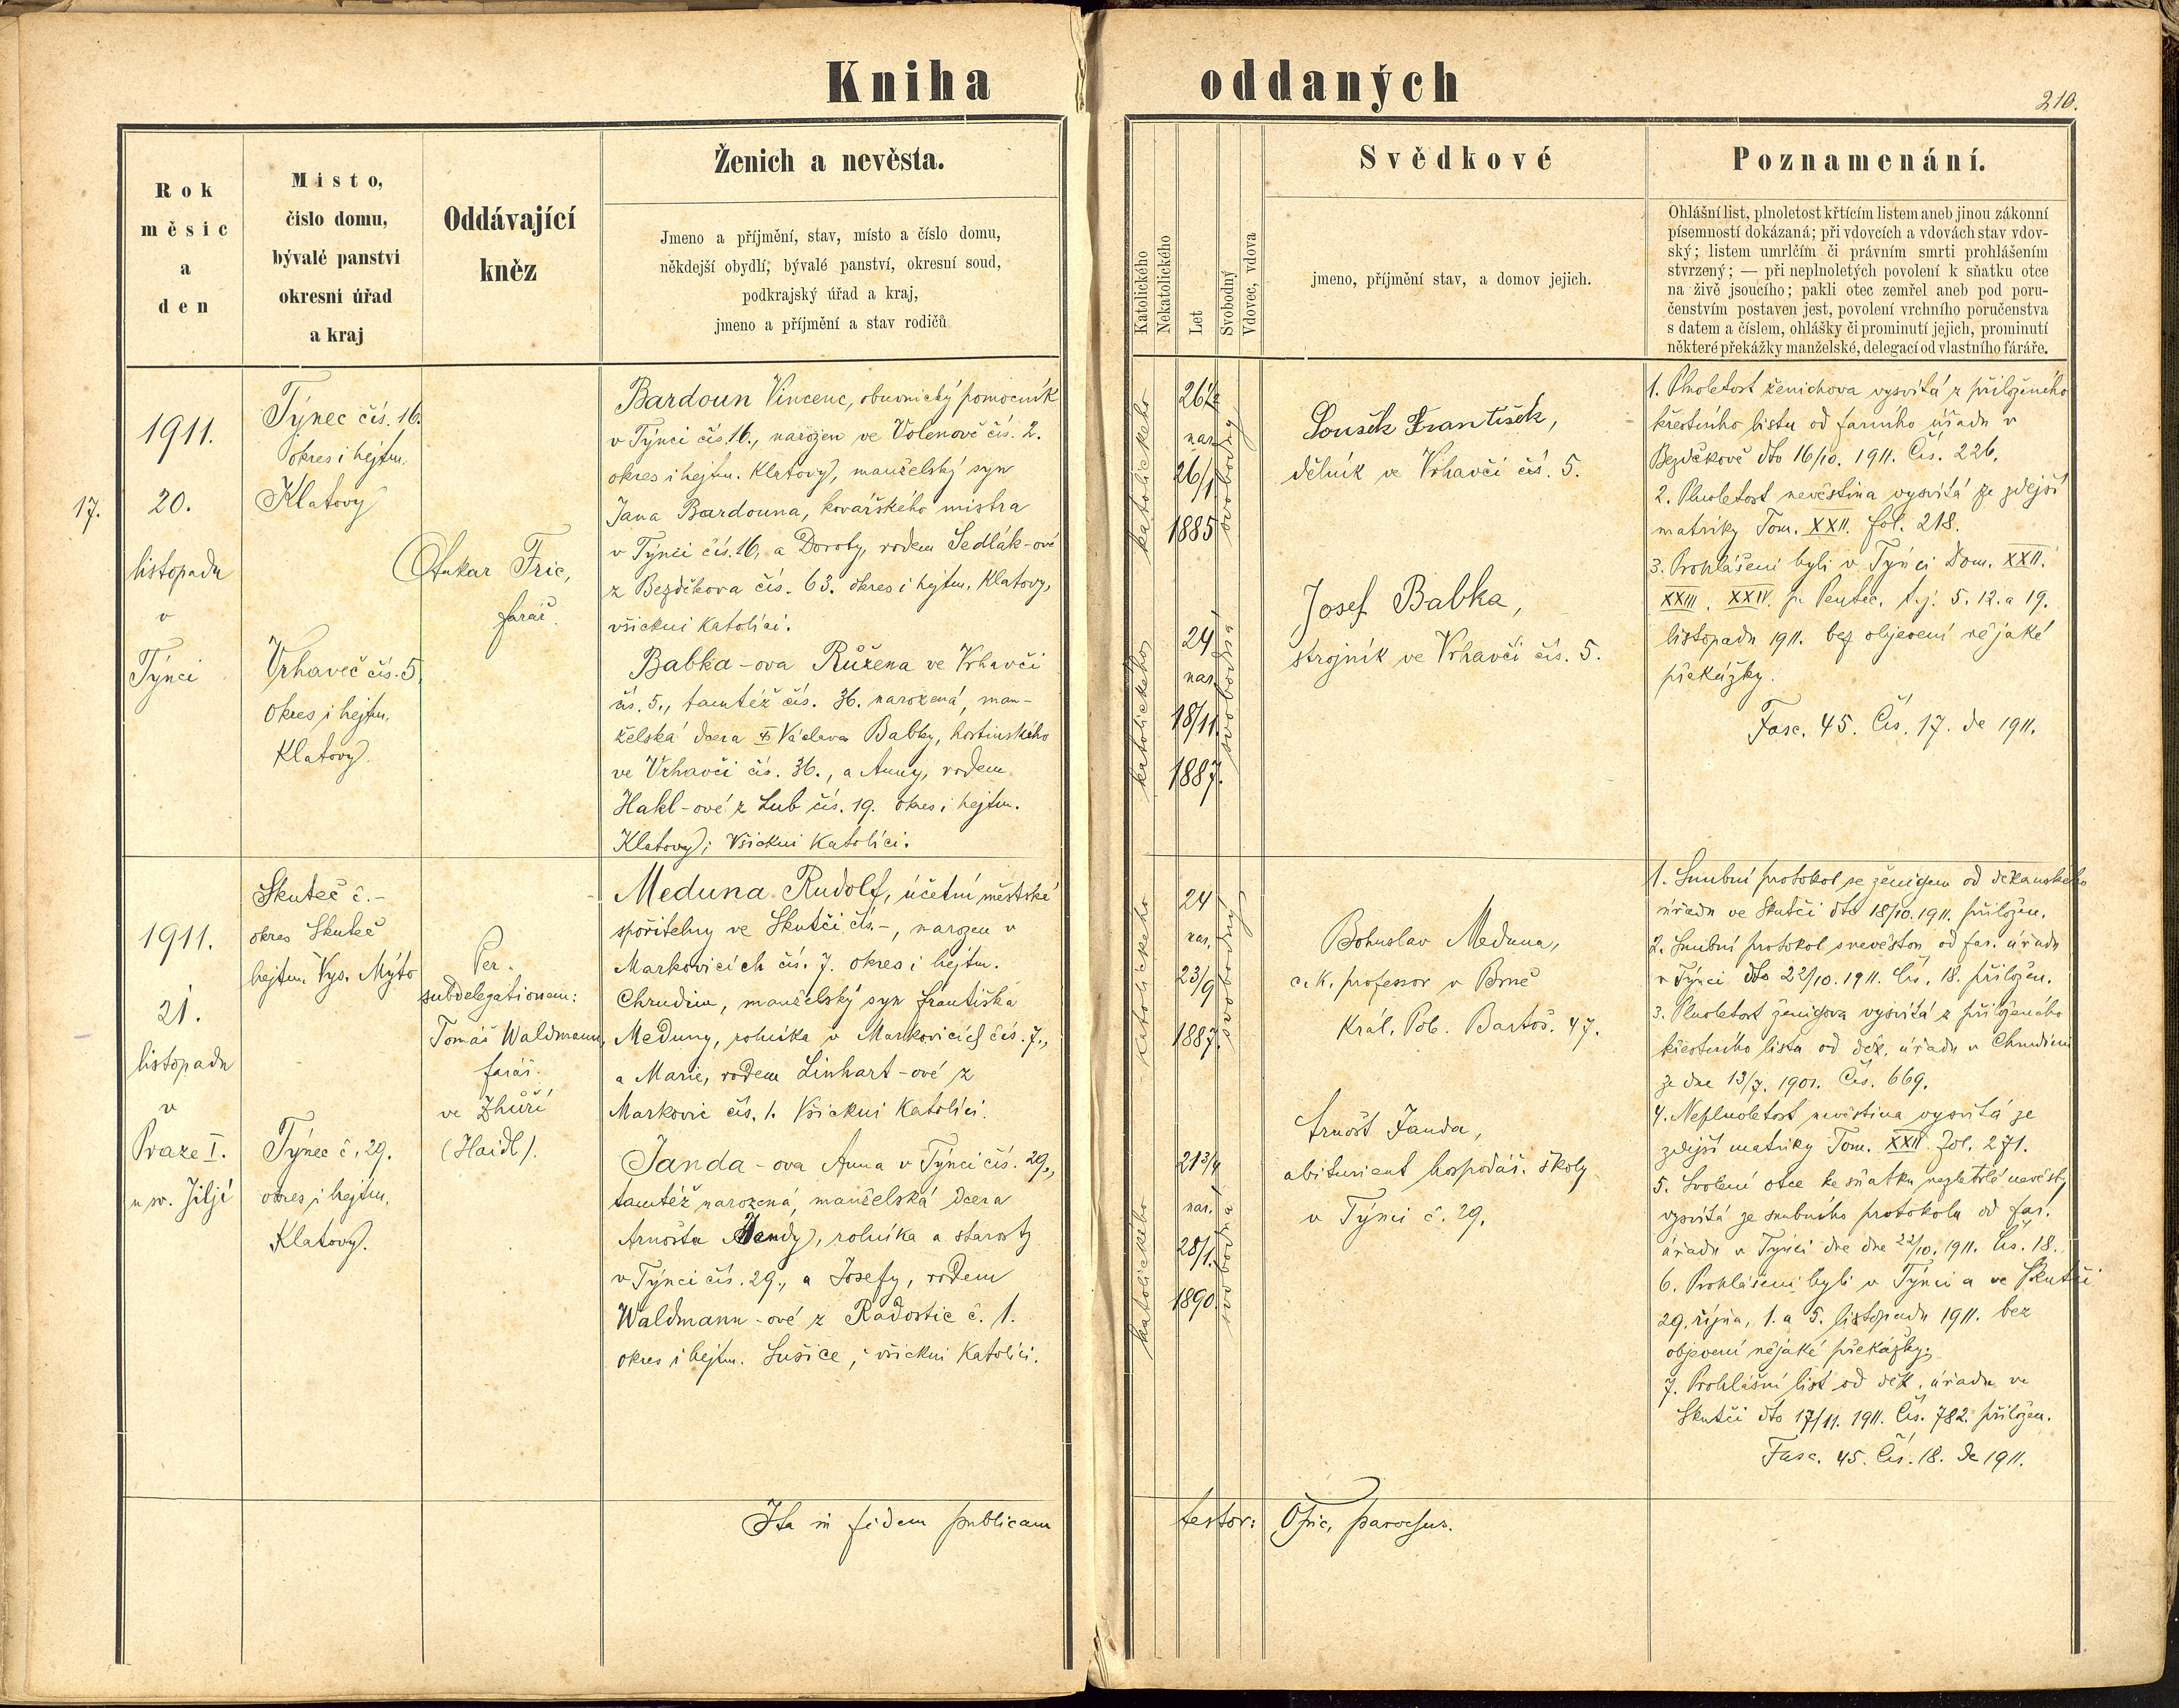 Kniha oddaných
210.
Rok
měsíc
a
den
Místo,
číslo domu,
bývalé panství
okresní úřad
a kraj
Oddávající
kněz
Ženich a nevěsta.
Jmeno a příjmění, stav, místo a číslo domu,
někdejší obydlí, bývalé panství, okresní soud,
podkrajský úřad a kraj,
jmeno a příjmění a stav rodičů
Katolického
Nekatolického
Let
Svobodný
Vdovec, vdova
Svědkové
jmeno, příjmění stav, a domov jejich.
Poznamenání.
Ohlášní list, plnoletost křtícím listem aneb jinou zákonní
písemností dokázaná; při vdovcích a vdovách stav vdov-
ský; listem umrlčím či právním smrti prohlášením
stvrzený; — při neplnoletých povolení k sňatku otce
na živě jsoucího; pakli otec zemřel aneb pod poru-
čenstvím postaven jest, povolení vrchního poručenstva
s datem a číslem, ohlášky či prominutí jejich, prominutí
některé překážky manželské, delegací od vlastního faráře.
17.
1911.
20.
listopadu
v
Týnci
Týnec čís. 16.
okres i hejtm.
Klatovy
Vrhaveč čís. 5
okres i hejtm.
Klatovy
Otakar Fric,
farář.
Bardoun Vincenc, obuvnický pomocník
v Týnci čís. 16., narozen ve Volenově čís. 2.
okres i hejtm. Klatovy, manželský syn
Jana Bardouna, kovářského mistra
v Týnci čís. 16, a Doroty, rodem Sedlák-ové
z Bezděkova čís. 63. okres i hejtm. Klatovy,
všickni Katolíci.
Babka-ova Růžena ve Vrhavči
čís. 5., tamtéž čís. 36. narozená, man-
želská dcera Václava Babky, hostinského
ve Vrhavči čís. 36., a Anny, rodem
Hakl-ové z Lub čís. 19. okres i hejtm.
Klatovy; Všickni Katolíci.
katolického
26 1/2
nar.
26/1
1885
svobodný
katolického
24
nar.
18/11.
1887.
svobodná
Loušek František,
dělník ve Vrhavči čís. 5.
Josef Babka,
strojník ve Vrhavči čís. 5.
1. Plnoletost ženichova vysvítá z přiloženého
křestního listu od farního úřadu v
Bezděkově dto 16/10. 1911. Čís. 226.
2. Plnoletost nevěstina vysvítá ze zdejší
matriky Tom. XXII. fol. 218.
3. Prohlášeni byli v Týnci Dom. XXII.
XXIII. XXIV. p. Pentec. t.j. 5. 12. a 19.
listopadu 1911. bez objevení nějaké
překážky.
Fasc. 45. Čís. 17. de 1911.
1911.
21.
listopadu
v
Praze I.
u sv. Jiljí
Skuteč č.-
okres Skuteč
hejtm. Vys. Mýto
Týnec č. 29.
okres i hejtm.
Klatovy.
Per.
subdelegationem:
Tomáš Waldmann,
farář.
ve Zhůří
(Haidl).
Meduna Rudolf, účetní městské
spořitelny ve Skutči čís.-, narozen v
Markovicích čís. 7. okres i hejtm.
Chrudim, manželský syn Františka
Meduny, rolníka v Markovicích čís. 7.,
a Marie, rodem Linhart-ové z
Markovic čís. 1. Všickni Katolíci.
Janda-ova Anna v Týnci čís. 29.,
tamtéž narozená, manželská dcera
Arnošta Jandy, rolníka a starosty
v Týnci čís. 29., a Josefy, rodem
Waldmann-ové z Radostic č. 1.
okres i hejtm. Sušice; všickni Katolíci.
katolického
24
nar.
23/9
1887.
svobodný
katolického
21 3/4
nar.
28/1.
1890.
svobodná
Bohuslav Meduna,
c. k. professor v Brně
Král. Pole. Bartoš. 47.
Arnošt Janda,
abiturient hospodář. školy
v Týnci č. 29.
1. Snubní protokol se ženichem od děkanského
úřadu ve Skutči dto 18/10. 1911. přiložen.
2. Snubní protokol s nevěstou od far. úřadu
v Týnci dto 22/10. 1911. Čís. 18. přiložen.
3. Plnoletost ženichova vysvítá z přiloženého
křestního listu od děk. úřadu v Chrudimi
ze dne 13/7. 1901. Čís. 669.
4. Neplnoletost nevěstina vysvítá ze
zdejší matriky Tom. XXII. Fol. 271.
5. Svolení otce ke sňatku nezletilé nevěsty
vysvítá ze snubního protokolu od far.
úřadu v Týnci dne 22/10. 1911. Čís. 18.
6. Prohlášeni byli v Týnci a ve Skutči
29. října, 1. a 5. listopadu 1911. bez
objevení nějaké překážky.
7. Prohlášní list od děk. úřadu ve
Skutči dto 17/11. 1911. Čís. 782. přiložen.
Fasc. 45. Čís. 18. de 1911.
Ita in fidem publicam testor: OFric, parochus.